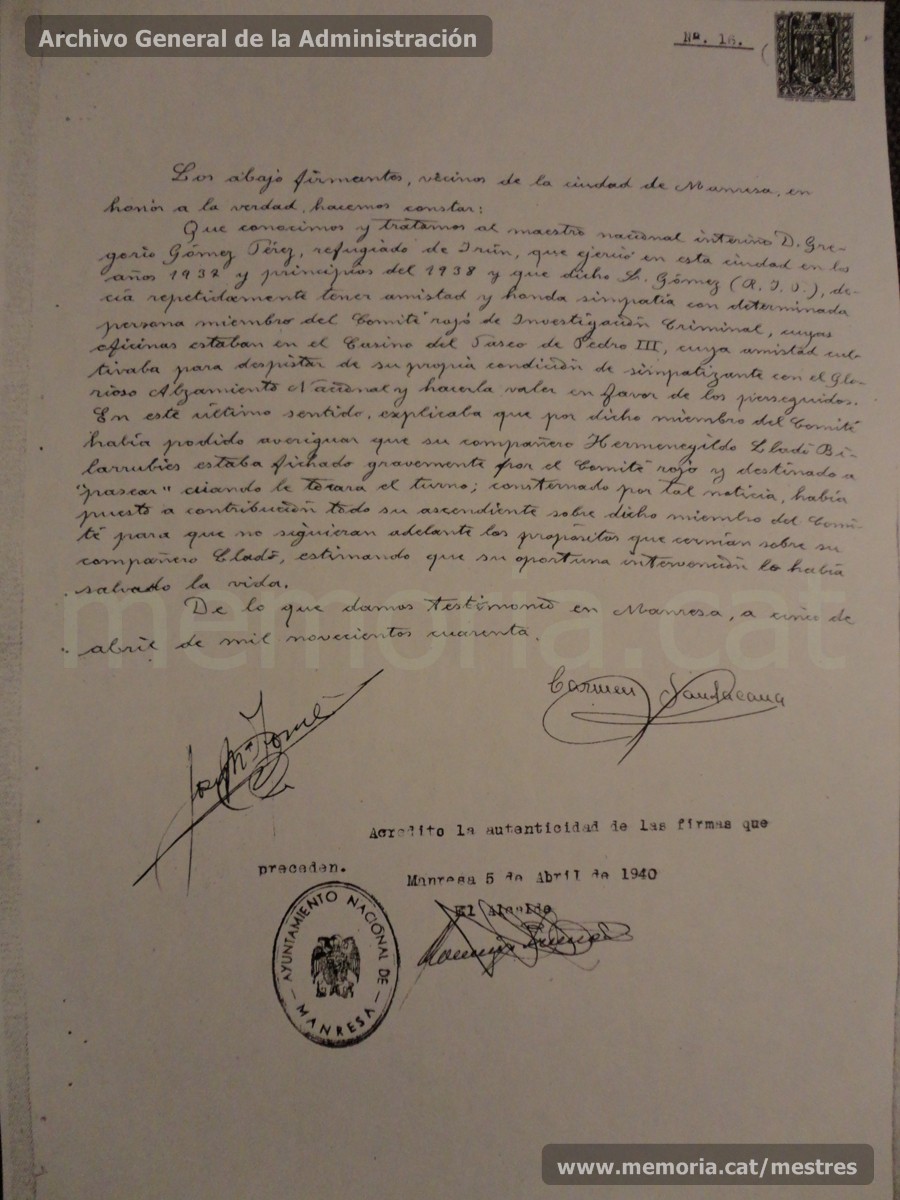 Archivo General de la Administración
Nº. 16.
Los abajo firmantes, vecinos de la ciudad de Manresa, en
honor a la verdad, hacemos constar:
Que conocimos y tratamos al maestro nacional interino D. Gre-
gorio Gómez Pérez, refugiado de Irún, que ejerció en esta ciudad en los
años 1937 y principios del 1938 y que dicho Sr. Gómez (R. I. P.), de-
cía repetidamente tener amistad y honda simpatía con determinada
persona miembro del Comité rojo de Investigación Criminal, cuyas
oficinas estaban en el Casino del Paseo de Pedro III, cuya amistad cul-
tivaba para despistar de su propia condición de simpatizante con el Glo-
rioso Alzamiento Nacional y hacerla valer en favor de los perseguidos.
En este último sentido, explicaba que por dicho miembro del Comité
había podido averiguar que su compañero Hermenegildo Lladó Bi-
larrubies estaba fichado gravemente por el Comité rojo y destinado a
"pasear" cuando le tocara el turno; consternado por tal noticia, había
puesto a contribución todo su ascendiente sobre dicho miembro del Comi-
té para que no siguieran adelante los propósitos que cernían sobre su
compañero Lladó, estimando que su oportuna intervención le había
salvado la vida.
De lo que damos testimonio en Manresa, a cinco de
abril de mil novecientos cuarenta.
memoria.cat
Carmen
José Mª
Acredito la autenticidad de las firmas que
preceden.
Manresa 5 de Abril de 1940
El Alcalde
AYUNTAMIENTO NACIONAL DE
MANRESA
www.memoria.cat/mestres